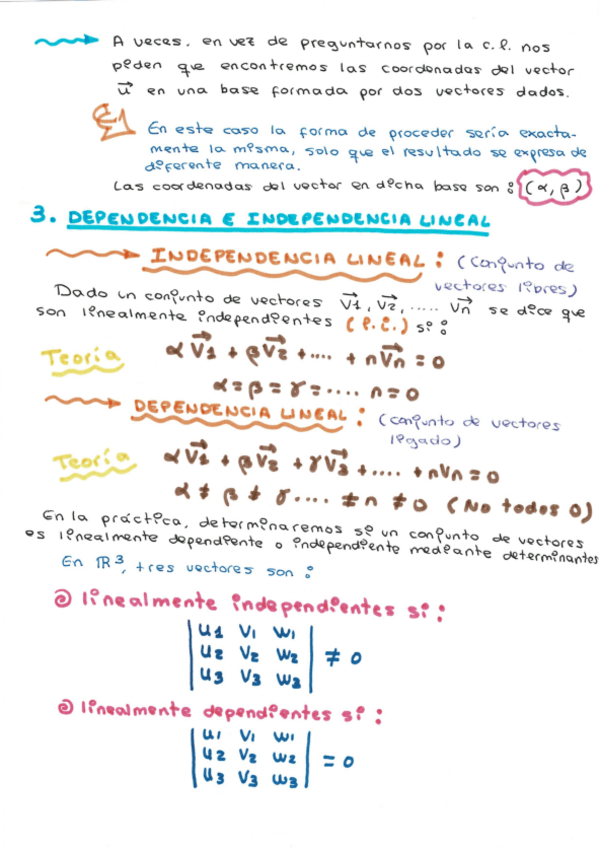 A veces, en vez de preguntarnos por la c.l. nos
piden que encontremos las coordenadas del vector
u⃗ en una base formada por dos vectores dados.
En este caso la forma de proceder sería exacta-
mente la misma, solo que el resultado se expresa de
diferente manera.
Las coordenadas del vector en dicha base son: (α, β)
3. DEPENDENCIA E INDEPENDENCIA LINEAL
INDEPENDENCIA LINEAL: (conjunto de
vectores libres)
Dado un conjunto de vectores v⃗1, v⃗2, ..... v⃗n se dice que
son linealmente independientes (l.i.) si:
Teoría αv⃗1 + βv⃗2 + .... + nv⃗n = 0
α = β = γ = .... n = 0
DEPENDENCIA LINEAL: (conjunto de vectores
ligado)
Teoría αv⃗1 + βv⃗2 + γv⃗3 + .... + nvn = 0
α ≠ β ≠ γ .... ≠ n ≠ 0 (No todos 0)
En la práctica, determinaremos si un conjunto de vectores
es linealmente dependiente o independiente mediante determinantes
En ℝ³, tres vectores son:
linealmente independientes si:
|u1 v1 w1|
|u2 v2 w2| ≠ 0
|u3 v3 w3|
linealmente dependientes si:
|u1 v1 w1|
|u2 v2 w2| = 0
|u3 v3 w3|